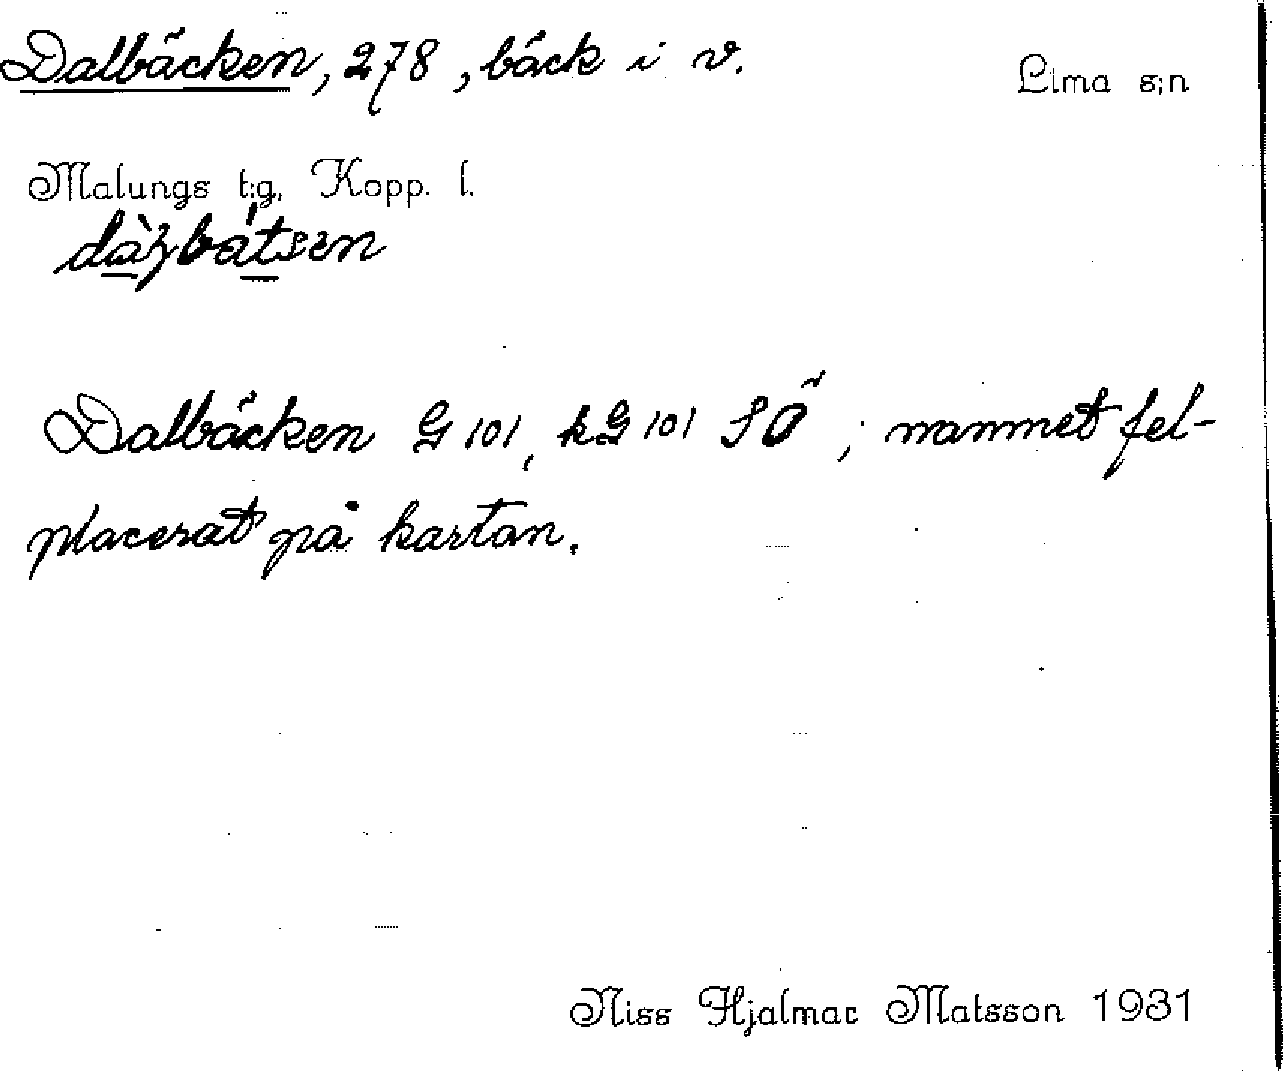 Dalbäcken, 278, bäck i v. Lima s;n
Malungs t;g, Kopp. l.
Dalbäcken G 101, kG 101 SÖ; namnet fel-
placerat på kartan.
Niss Hjalmar Matsson 1931